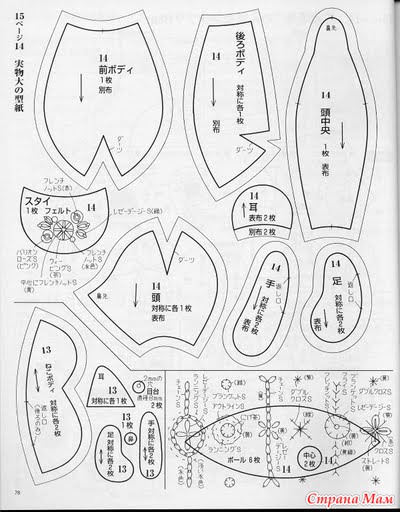 15ページ
14 実物大の型紙
14
前ボディ
1枚
別布
ダーツ
14
後ろボディ
対称に各1枚
別布
ダーツ
鼻先
14
頭中央
1枚
表布
フレンチ
ノットS(赤)
スタイ
1枚 フェルト
14
レゼーデージーS(緑)
バリオン
ローズS
(ピンク)
フレンチ
ノットS
(水色)
中心にフレンチノットS
(黄)
14
耳
表布2枚
別布2枚
鼻先
ダーツ
14
頭
対称に各1枚
表布
返し口
14
手
対称に各2枚
表布
14
足
対称に各2枚
表布
返し口
13
ねこボディ
対称に各2枚
返し口
(後ろのみ)
耳
13
対称に各1枚
2mmの
穴
目台
直径8mm
2枚
13
1枚
鼻
足
対称に各2枚
13
手
対称に各2枚
13
チェーンS
ブランケットS
アウトラインS
ランニングS
ボール6枚
14
中心
2枚
14
チェーンS
ダブル
クロスS
ダブルクロスS
レゼーデージーS
クロスS
ストレートS
78
Страна Мам